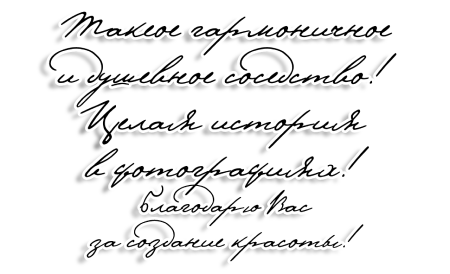 Такое гармоничное
и душевное соседство!
Целая история
в фотографиях!
Благодарю Вас
за создание красоты!